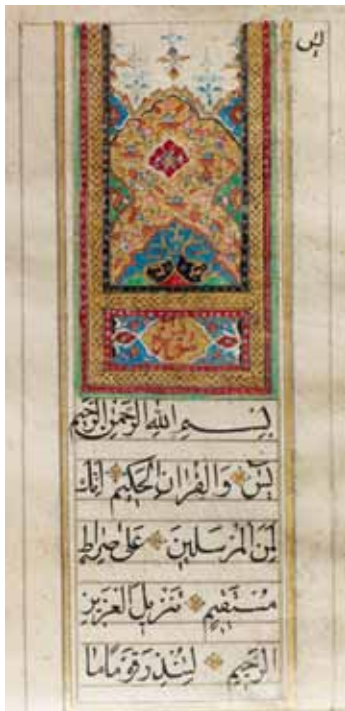 يٰس
بِسْمِ اللهِ الرَّحْمٰنِ الرَّحِيْمِ
يٰسٓ وَالْقُرْاٰنِ الْحَكِيْمِ اِنَّكَ
لَمِنَ الْمُرْسَلِيْنَ عَلٰى صِرَاطٍ
مُسْتَقِيْمٍ تَنْزِيْلَ الْعَزِيْزِ
الرَّحِيْمِ لِتُنْذِرَ قَوْمًا مَا